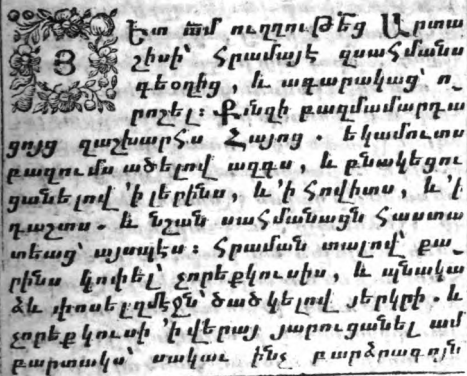 Յետ ամ ուղղութեց Արտա
շիսի՝ Հրամայէ զսահմանս
գեօղից, և ագարակաց՝ ո֊
րոշել։ Քանզի բազմամարդա
ցոյց զաշխարհս Հայոց. եկամուտս
բազումս ածելով ազգս, և բնակեցու
ցանելով ՚ի լերինս, և ՚ի հովիտս, և ՚ի
դաշտս. և նշան սահմանացն հաստա
տեաց՝ այսպէս։ Հրաման տալով՝ քա֊
րինս կոփել՝ չորեքկուսիս, և պնակա
ձև փոսել զմէջն՝ ծածկելով յերկրի. և
չորեքկուսի ՚ի վերայ յարուցանել ամ
բարտակս՝ սակաւ ինչ բարձրագոյն